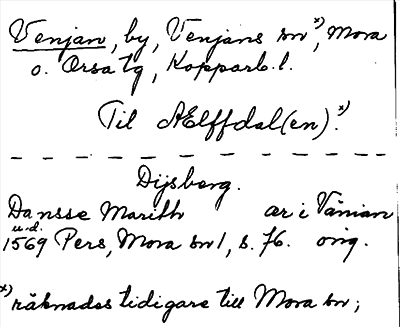 Venjan, by, Venjans sn x), Mora
o. Orsa tg, Kopparb. l.
Til AElffdal(en). x)
Dijsberg.
Dansse Marith är i Vänian
u.d.
1569 Pers, Mora sn 1, s. 76. orig.
x) räknades tidigare till Mora sn;